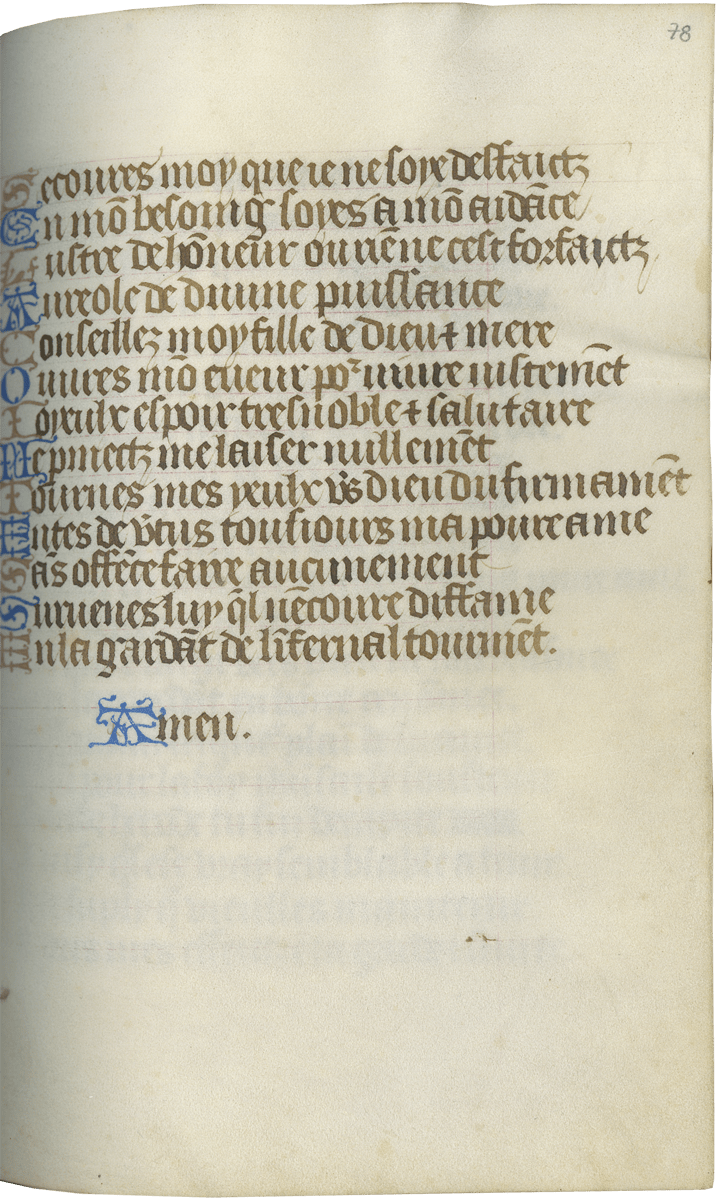 78
Secoures moy que ie ne soye deffaictz
En mõ besoing soyes a mõ aidãce
Iustre de hõneur ou riẽ ne cest forfaictz
Aureole de diuine puissance
Conseillez moy fille de dieu ⁊ mere
Ouures mõ cueur poʳ viure iustemẽt
Ioyeulx espoir tresnoble ⁊ salutaire
Ne pmectz me laiser nullemẽt
Tournes mes yeulx vs̃ dieu du firmamẽt
Entes de ṽtus tousiours ma poure ame
Sãs offẽce faire aucunement
Suruenes luy q̃l nẽcoure diffame
En la gardãt de lĩfernal tourmẽt.
Amen.